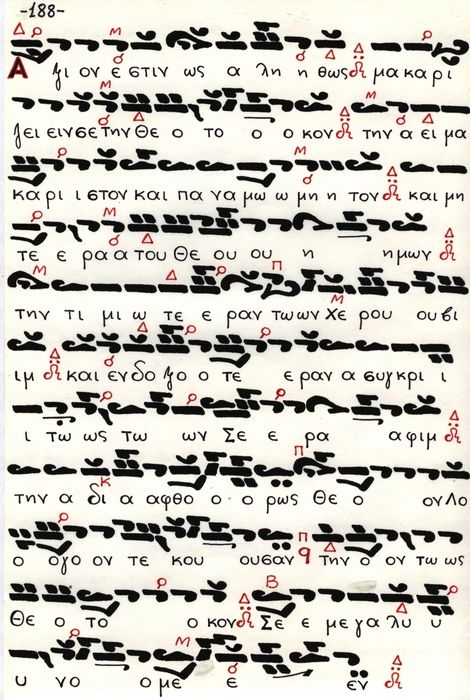 -188-
Αξι ον ε στιν ως α λη η θως μα κα ρι
ζει ειν σε την Θε ο το ο ο κον την α ει μα
κα ρι ι στον και πα να μω ω μη η τον και μη
τε ε ρα α του Θε ου ου η ημων
την τι μι ω τε ε ραν των ων χε ρου ου βι
ιμ και εν δο ξο ο τε ε ραν α συγκρι ι
ι τω ως τω ων Σε ε ρα αφιμ
την α δι α αφθο ο ο ρως Θε ο ον Λο
ο ογο ον τε κου ουσαν την ο ον τω ως
Θε ο το ο κον Σε ε με γα λυ υ
υ νο ο με ε εν